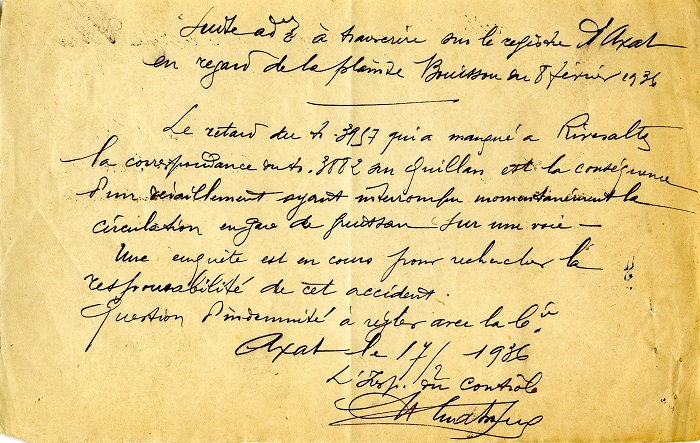 Suite à transcrire sur le registre d'Axat
en regard de la plainte Bouisson du 8 février 1936
Le retard du tr. 3957 qui a manqué à Rivesaltes
la correspondance du tr. 3882 sur Quillan est la conséquence
d'un déraillement ayant interrompu momentanément la
circulation en gare de sur une voie —
Une enquête est en cours pour rechercher la
responsabilité de cet accident.
Question d'indemnité à régler avec la Cie
Axat le 17/2 1936
L'Insp. du contrôle